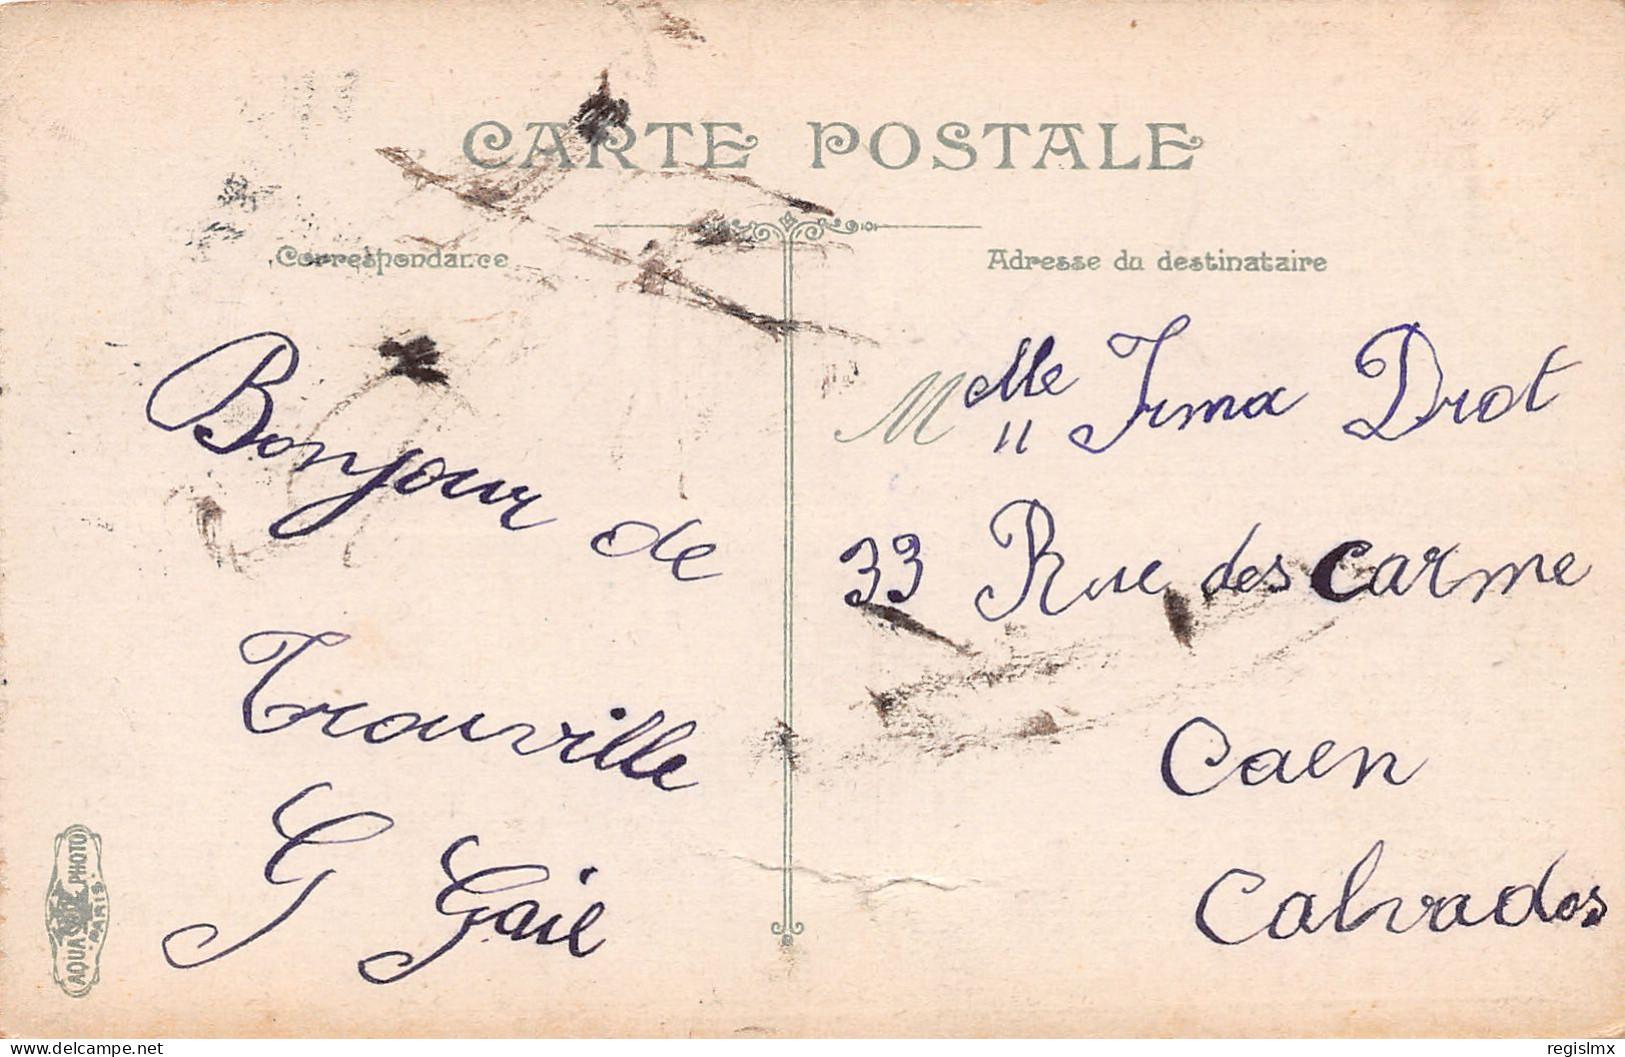 CARTE POSTALE
Correspondance
Adresse du destinataire
Bonjour de
Trouville
G Gail
Melle Irma Drot
33 Rue des Carme
Caen
Calvados
AQUA PHOTO
PARIS
delcampe.net
regislmx